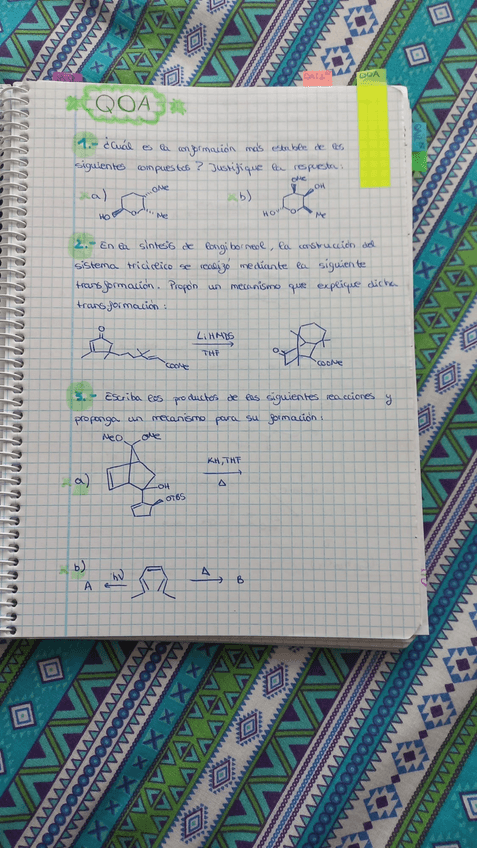 QOA
1.- ¿Cuál es la conformación más estable de los
siguientes compuestos? Justifique la respuesta:
a)
OMe
HO
O
Me
b)
OMe
OH
HO
O
Me
2.- En la síntesis de longiborneol, la construcción del
sistema tricíclico se realizó mediante la siguiente
transformación. Propón un mecanismo que explique dicha
transformación:
O
COOMe
LiHMDS
THF
O
COOMe
3.- Escriba los productos de las siguientes reacciones y
proponga un mecanismo para su formación:
MeO
OMe
a)
OH
OTBS
KH, THF
Δ
b)
A
hν
Δ
B
QOA